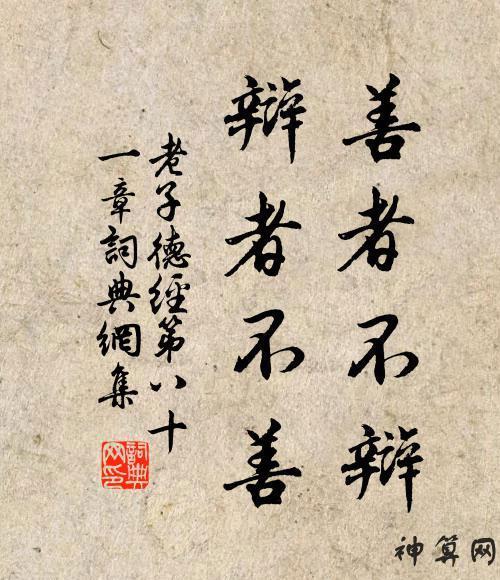 善者不辯
辯者不善
老子德經第八十
一章詞典網集
詞典
网印
神算网